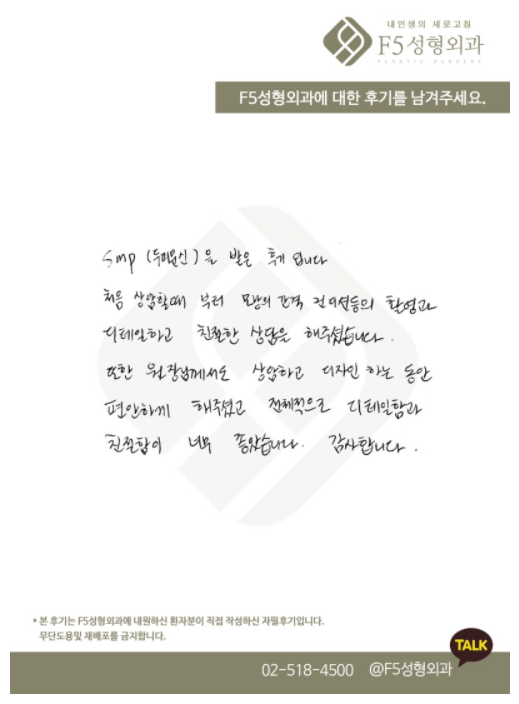 내인생의 새로고침
F5성형외과
PLASTIC SURGERY
F5성형외과에 대한 후기를 남겨주세요.
SMP (두피문신)을 받은 후기 입니다
처음 상담할때 부터 모발의 간격 컨디션등의 촬영과
디테일하고 친절한 상담을 해주셨습니다.
또한 원장님께서도 상담하고 디자인 하는 동안
편안하게 해주셨고 전체적으로 디테일함과
친절함이 너무 좋았습니다. 감사합니다.
* 본 후기는 F5성형외과에 내원하신 환자분이 직접 작성하신 자필후기입니다.
무단도용및 재배포를 금지합니다.
TALK
02-518-4500 @F5성형외과